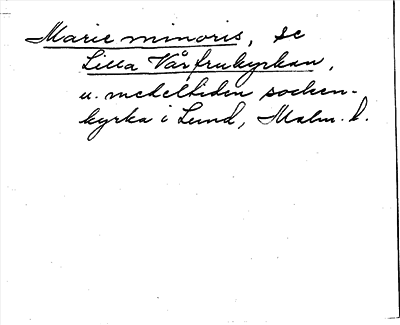 Marie minoris, se
Lilla Vårfrukyrkan,
u. medeltiden socken-
kyrka i Lund, Malm. l.